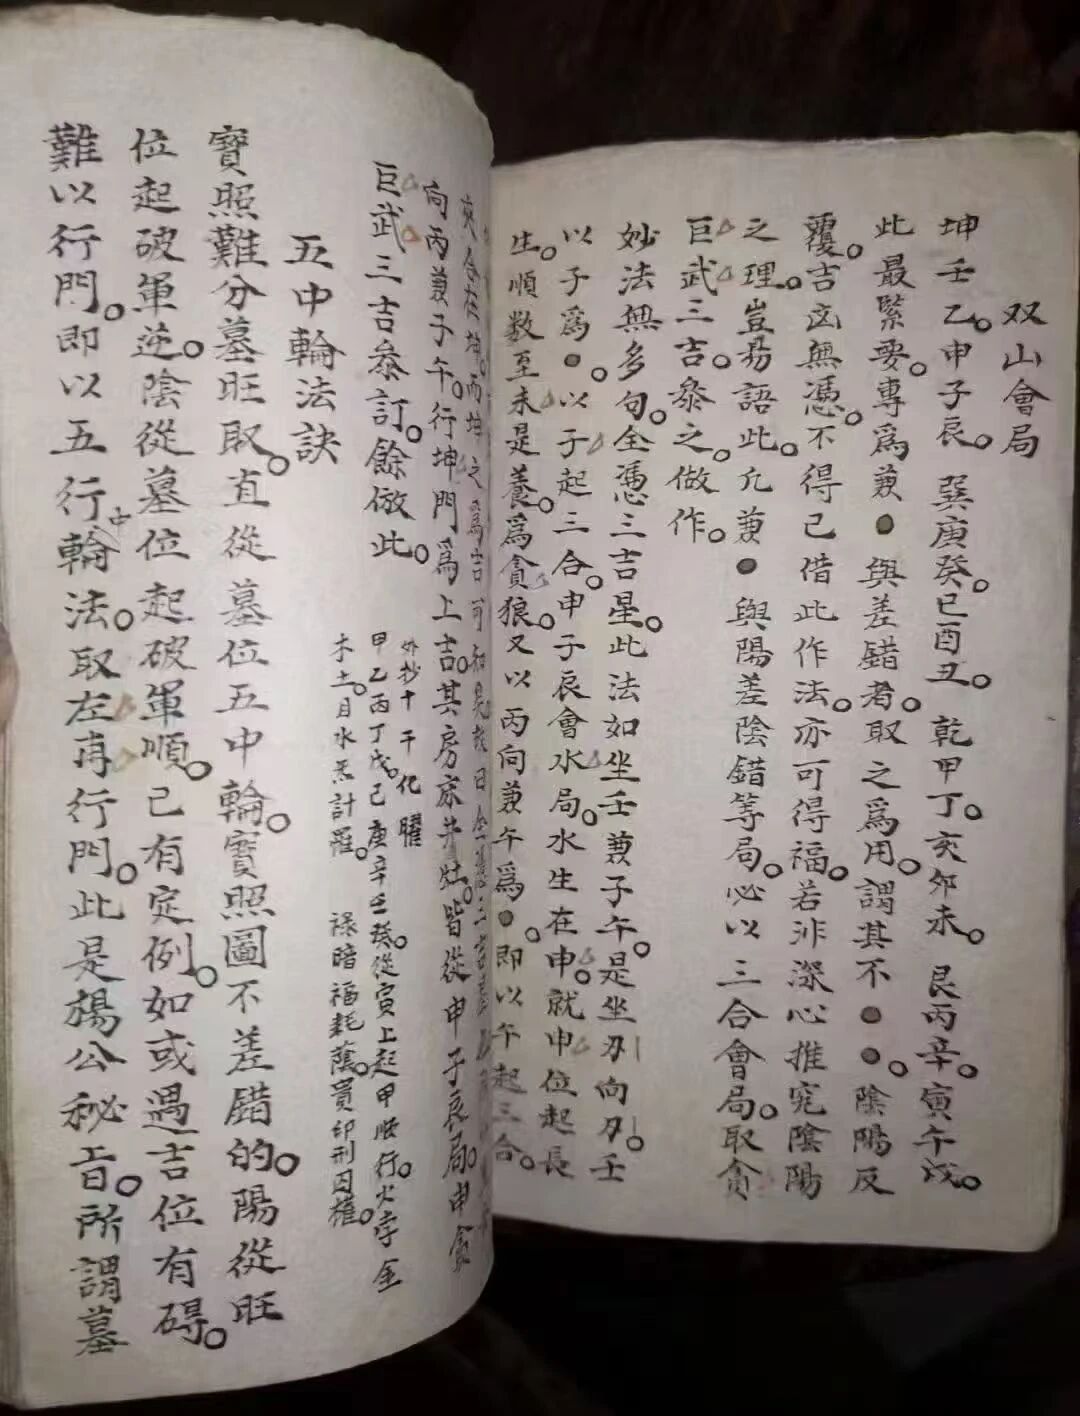 双山會局
坤壬乙。申子辰。巽庚癸。巳酉丑。乾甲丁。亥卯未。艮丙辛。寅午戌。
此最緊要。專爲兼●與差錯者。取之爲用。謂其不●●。陰陽反
覆。吉凶無憑。不得已借此作法。亦可得福。若非深心推究陰陽
之理。豈易語此。凡兼●與陽差陰錯等局。必以三合會局。取貪
巨武三吉。叅之。做作。
妙法無多句。全憑三吉星。此法如坐壬兼子午。是坐刃向刃。壬
以子爲●。以子起三合。申子辰會水局。水生在申。就申位起長
生。順数至未是養。爲貪狼。又以丙向兼午爲●。即以午起三合。
向丙兼子午。行坤門爲上吉。其房床井灶。皆從申子辰局。申貪
巨武三吉叅訂。餘倣此。
外抄十干化曜
甲乙丙丁戊。己庚辛壬癸。從寅上起甲順行。火孛金
木土。月水炁計羅。祿暗福耗蔭。貴印刑囚權。
五中輪法訣
寶照難分墓旺取。直從墓位五中輪。寶照圖不差錯的。陽從旺
位起破軍逆。陰從墓位起破軍順。已有定例。如或遇吉位有碍。
難以行門。即以五行中輪法。取左再行門。此是楊公秘旨。所謂墓